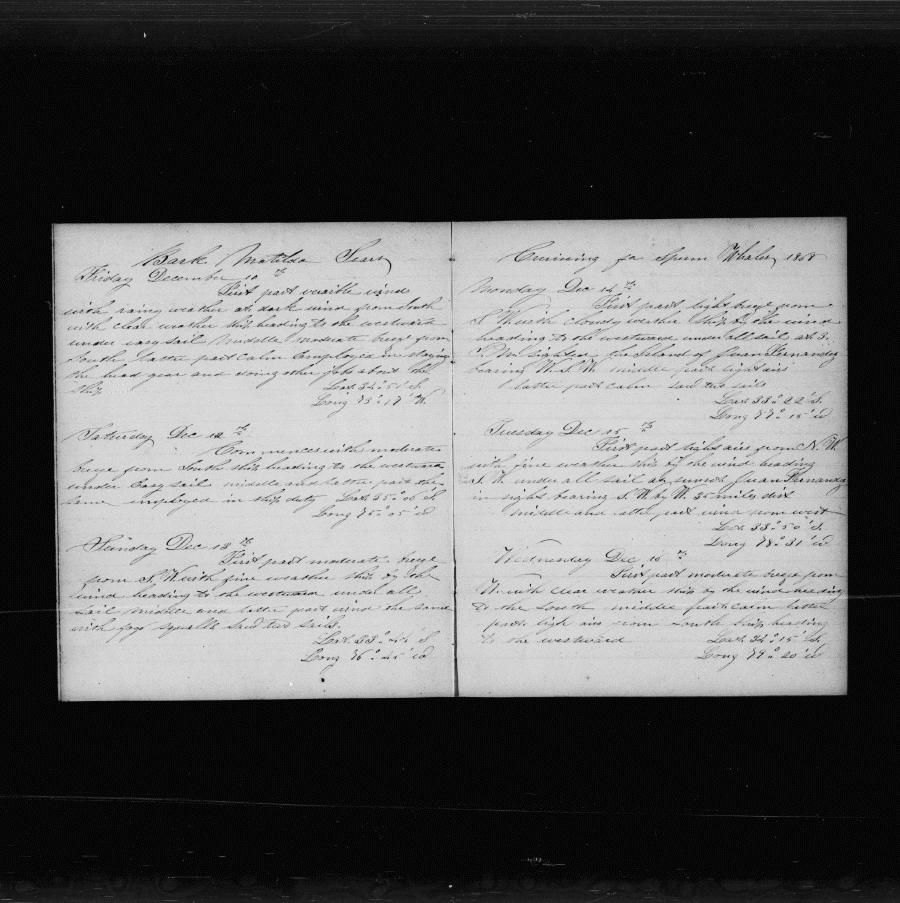 Bark Matilda Sears
Friday December 10th
First part varible wind
with rainy weather at dark wind from South
with clear weather ship heading to the westward
under easy sail Middle moderate breeze from
South Latter part calm Employed in staying
the head gear and doing other jobs about the
Ship Lat 34° 51' S.
Long 75° 17' W.
Saturday Dec 12th
Commences with moderate
breeze from South ship heading to the westward
under Easy sail middle and latter part the
same employed in ships duty Lat 35° 06' S
Long 75° 05' W
Sunday Dec 13th
First part moderate breeze
from S. W with fine weather ship by the
wind heading to the westward under all
sail middle and latter part wind the same
with squalls Saw two sails
Lat. 33° 44' S
Long 76° 45' W
Cruising for Sperm Whales 1868
Monday Dec 14th
First part light breeze from
S W with cloudy weather ship by the wind
heading to the westward under all sail at 3.
P. M. Sighted the Island of Juan Fernandez
bearing W. S. W. middle part light airs
latter part calm saw two sails
Lat 33° 22' S.
Long 77° 15' W
Tuesday Dec 15th
First part light airs from N. W.
with fine weather ship by the wind heading
S. W under all sail at sunset Juan Fernandez
in sight bearing S. W by W. 35 miles dist
middle and latter part wind from west
Lat. 33° 50' S.
Long 78° 31' W
Wednesday Dec 16th
First part moderate breeze from
W. with clear weather ship by the wind heading
to the South middle part calm latter
part ligh airs from South ship heading
to the westward Lat 34° 15' S.
Long 79° 20' W